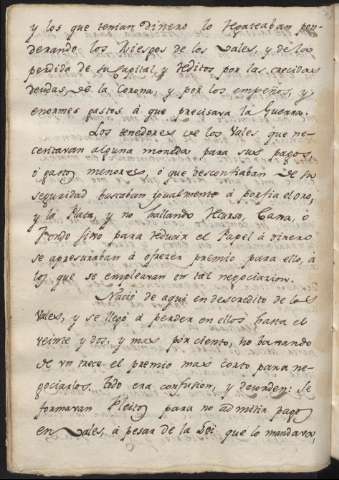 y los que tenian Dinero lo regateaban pon-
derando los Riesgos de los Vales, y de la
perdida de su Capital, y reditos por las crecidas
deudas, de la Corona, y por los empeños, y
enormes gastos á que precisava la Guerra.
Los tenedores de los Vales que ne-
cesitavan alguna moneda para sus pagos
ó gastos menores, ó que desconfiaban de su
seguridad buscaban igualmente á porfia el oro,
y la Plata, y no hallando Mesa, Casa, ó
Fondo fixo para reducir el Papel á dinero
se apresuraban á ofrezer premio para ello, á
los que se empleavan en tal negociacion.
Nació de aqui en descredito de los
Vales, y se llegó á perder en ellos hasta el
veinte y dos, y mas por ciento, no baxando
de un trece el premio mas corto para ne-
gociarlos. Todo era confusion, y desorden: Se
formavan Pleitos para no admitir pagos
en Vales, á pesar de la Lei que lo mandava,